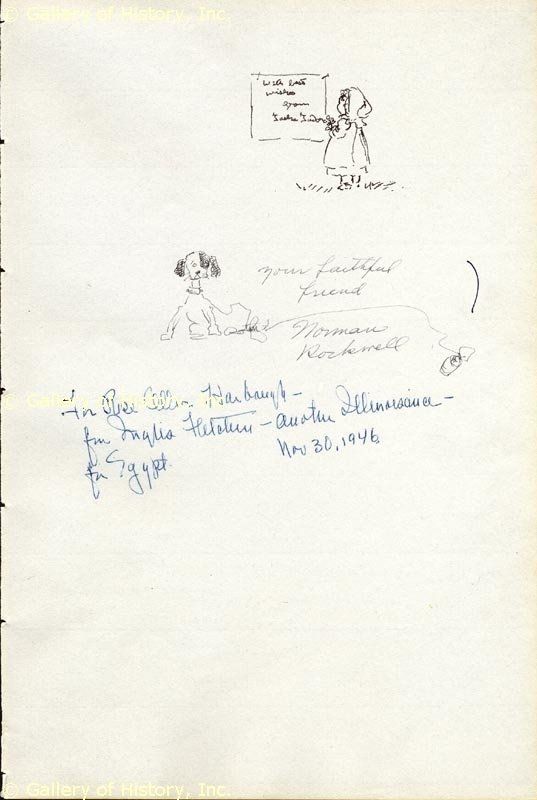 © Gallery of History, Inc.
With best
wishes
from
Tasha Tudor
Your faithful
friend
Norman
Rockwell
© Gallery of History, Inc.
For Rose Ellen Harbaugh –
from Inglis Fletcher – another Illinoisience –
for Egypt. Nov 30, 1946
© Gallery of History, Inc.
© Gallery of History, Inc.